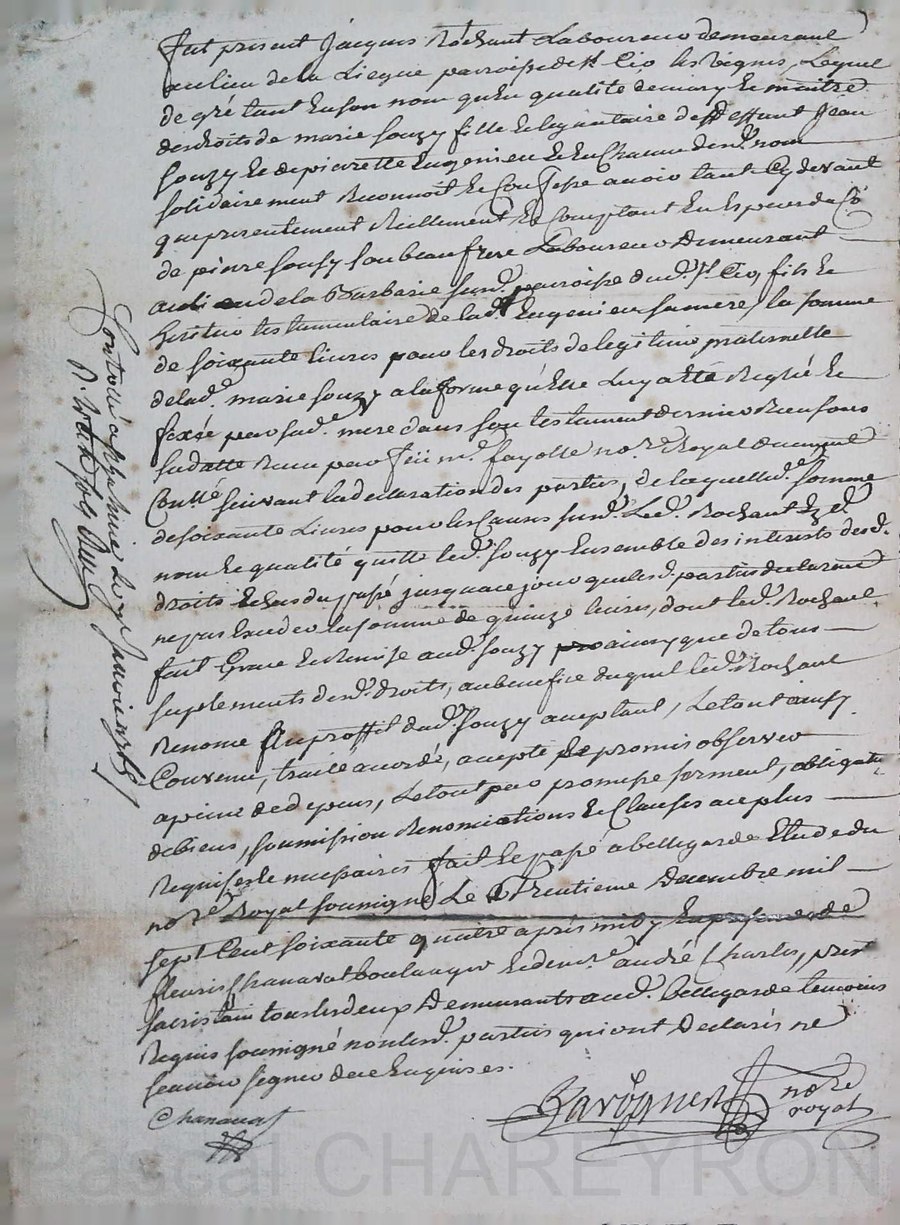 fut present Jacques Rochant Laboureur demeurant
au lieu de la Liegue parroisse de st Cir les vignes, Lequel
de gré tant En son nom qu'En qualité de mary Et maitre
des droits de marie Souzy fille Et legataire de deffunt Jean
Souzy Et de pierrette Eugenieu Et En Chacun desd. nom
solidairement Reconnoit Et Confesse avoir tant Cy devant
que presentement Reellement Et Comptant En Especes de
de pierre Souzy Son beau frere Laboureur Demeurant
au lieu de la Barbarie susd. parroisse dud. st. Cir, fils Et
heritier testamentaire de lad. Eugenieu sa mere, la somme
de soixante livres pour les droits de legitime maternelle
de lad. marie souzy a la forme qu'Elle Luy a Eté Reglé Et
fixée par sad. mere dans son testament dernier Receu sous
sa datte Receu par feu me. fayolle nore. Royal
Conllé suivant la declaration des parties, de laquelle d. somme
de soixante Livres pour les Causes susd. Led. Rochant Ezd.
nom Et qualité quitte led. Souzy Ensemble des interests desd.
droits Echus du passé jusqu'a ce jour que lesd. parties declarent
ne pas Exceder la somme de quinze livres, dont led. Rochant
fait Grace Et Remise aud. Souzy ainsy que de tous
suplements desd. droits, au benefice duquel led. Rochant
Renonce Au proffit dud. Souzy acceptant, Le tout ainsy
Convenu, traité accordé, accepté Et promis observer
a peine de depens, Le tout par promesse serment, obligatn
de biens, soumission Renonciations Et Clauses au plus
Requises Et necessaires fait Et passé a bellegarde Etude du
nore. Royal soussigné Le Trentieme Decembre mil
sept Cent soixante quatre après midy En presence de
fleuris Chanavat boulanger Et de sr. andré Charles,
sacristain tous les deux Demeurants aud. bellegarde temoins
Requis soussigné non lesd. parties qui ont Declarés ne
scavoir signer de ce Enquises.
Chanavat
nore
royal
Pascal CHAREYRON